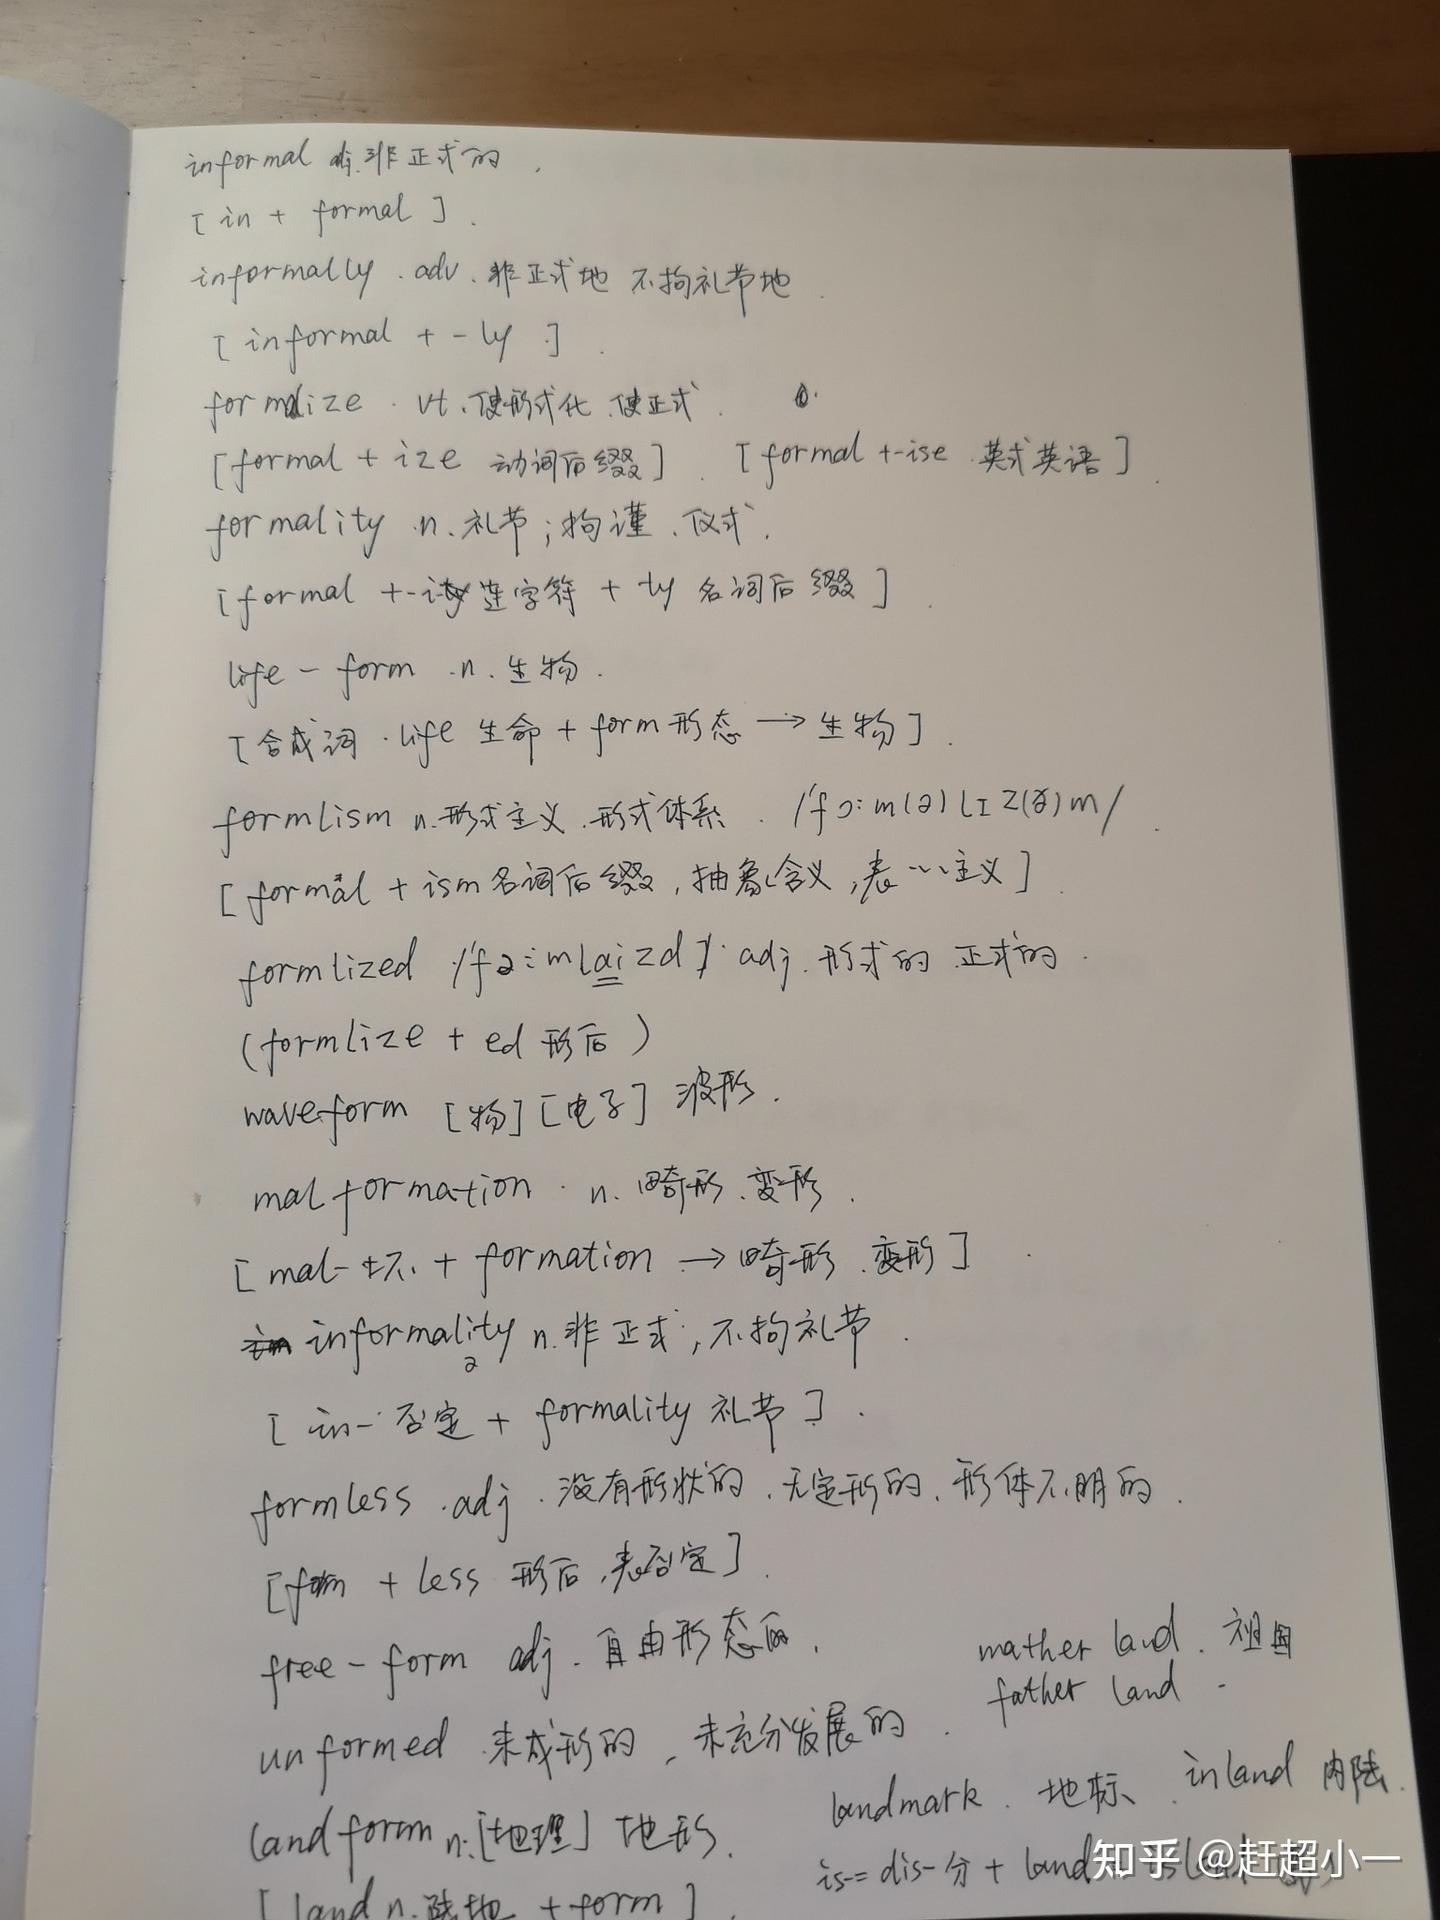 informal adj. 非正式的.
[in + formal].
informally. adv. 非正式地 不拘礼节地.
[informal + -ly].
formalize. vt. 使形式化、使正式.
[formal + ize 动词后缀]. [formal + -ise 英式英语].
formality. n. 礼节; 拘谨、仪式.
[formal + -i 连字符 + ty 名词后缀].
life-form. n. 生物.
[合成词. life 生命 + form 形态 → 生物].
formlism n. 形式主义. 形式体系. /ˈfɔ:m(ə)lɪz(ə)m/.
[formal + ism 名词后缀, 抽象含义, 表…主义].
formlized /ˈfɔ:mlaizd/. adj. 形式的 正式的.
(formlize + ed 形后)
waveform [物][电子] 波形.
malformation. n. 畸形、变形.
[mal- 坏 + formation → 畸形、变形].
informality n. 非正式, 不拘礼节.
[in- 否定 + formality 礼节].
formless. adj. 没有形状的、无定形的、形体不明的.
[form + less 形后, 表否定].
free-form adj. 自由形态的.
mather land. 祖国
father land.
unformed 未成形的, 未充分发展的.
landmark. 地标、inland 内陆.
landform n. [地理] 地形.
is- = dis- 分 + land =
[land n. 陆地 + form].
知乎 @赶超小一